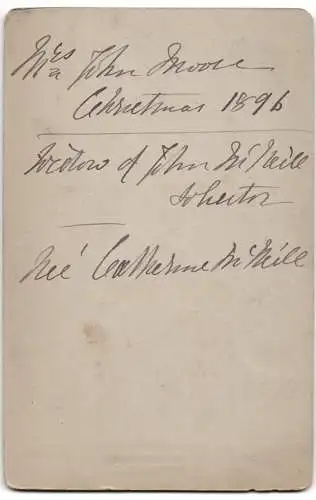 Mrs John Moore
Christmas 1896
Widow of John McNeill
Solicitor
Neé Catherine McNeill